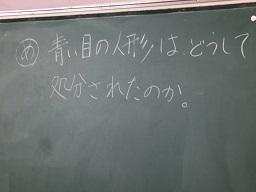 め 青い目の人形は、どうして
処分されたのか。